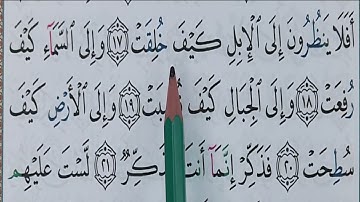 أَفَلَا يَنظُرُونَ إِلَى الْإِبِلِ كَيْفَ خُلِقَتْ ١٧ وَإِلَى السَّمَآءِ كَيْفَ
رُفِعَتْ ١٨ وَإِلَى الْجِبَالِ كَيْفَ ١٩ وَإِلَى الْأَرْضِ كَيْفَ
سُطِحَتْ ٢٠ فَذَكِّرْ إِنَّمَآ أَنتَ مُذَكِّرٌ ٢١ لَسْتَ عَلَيْهِم